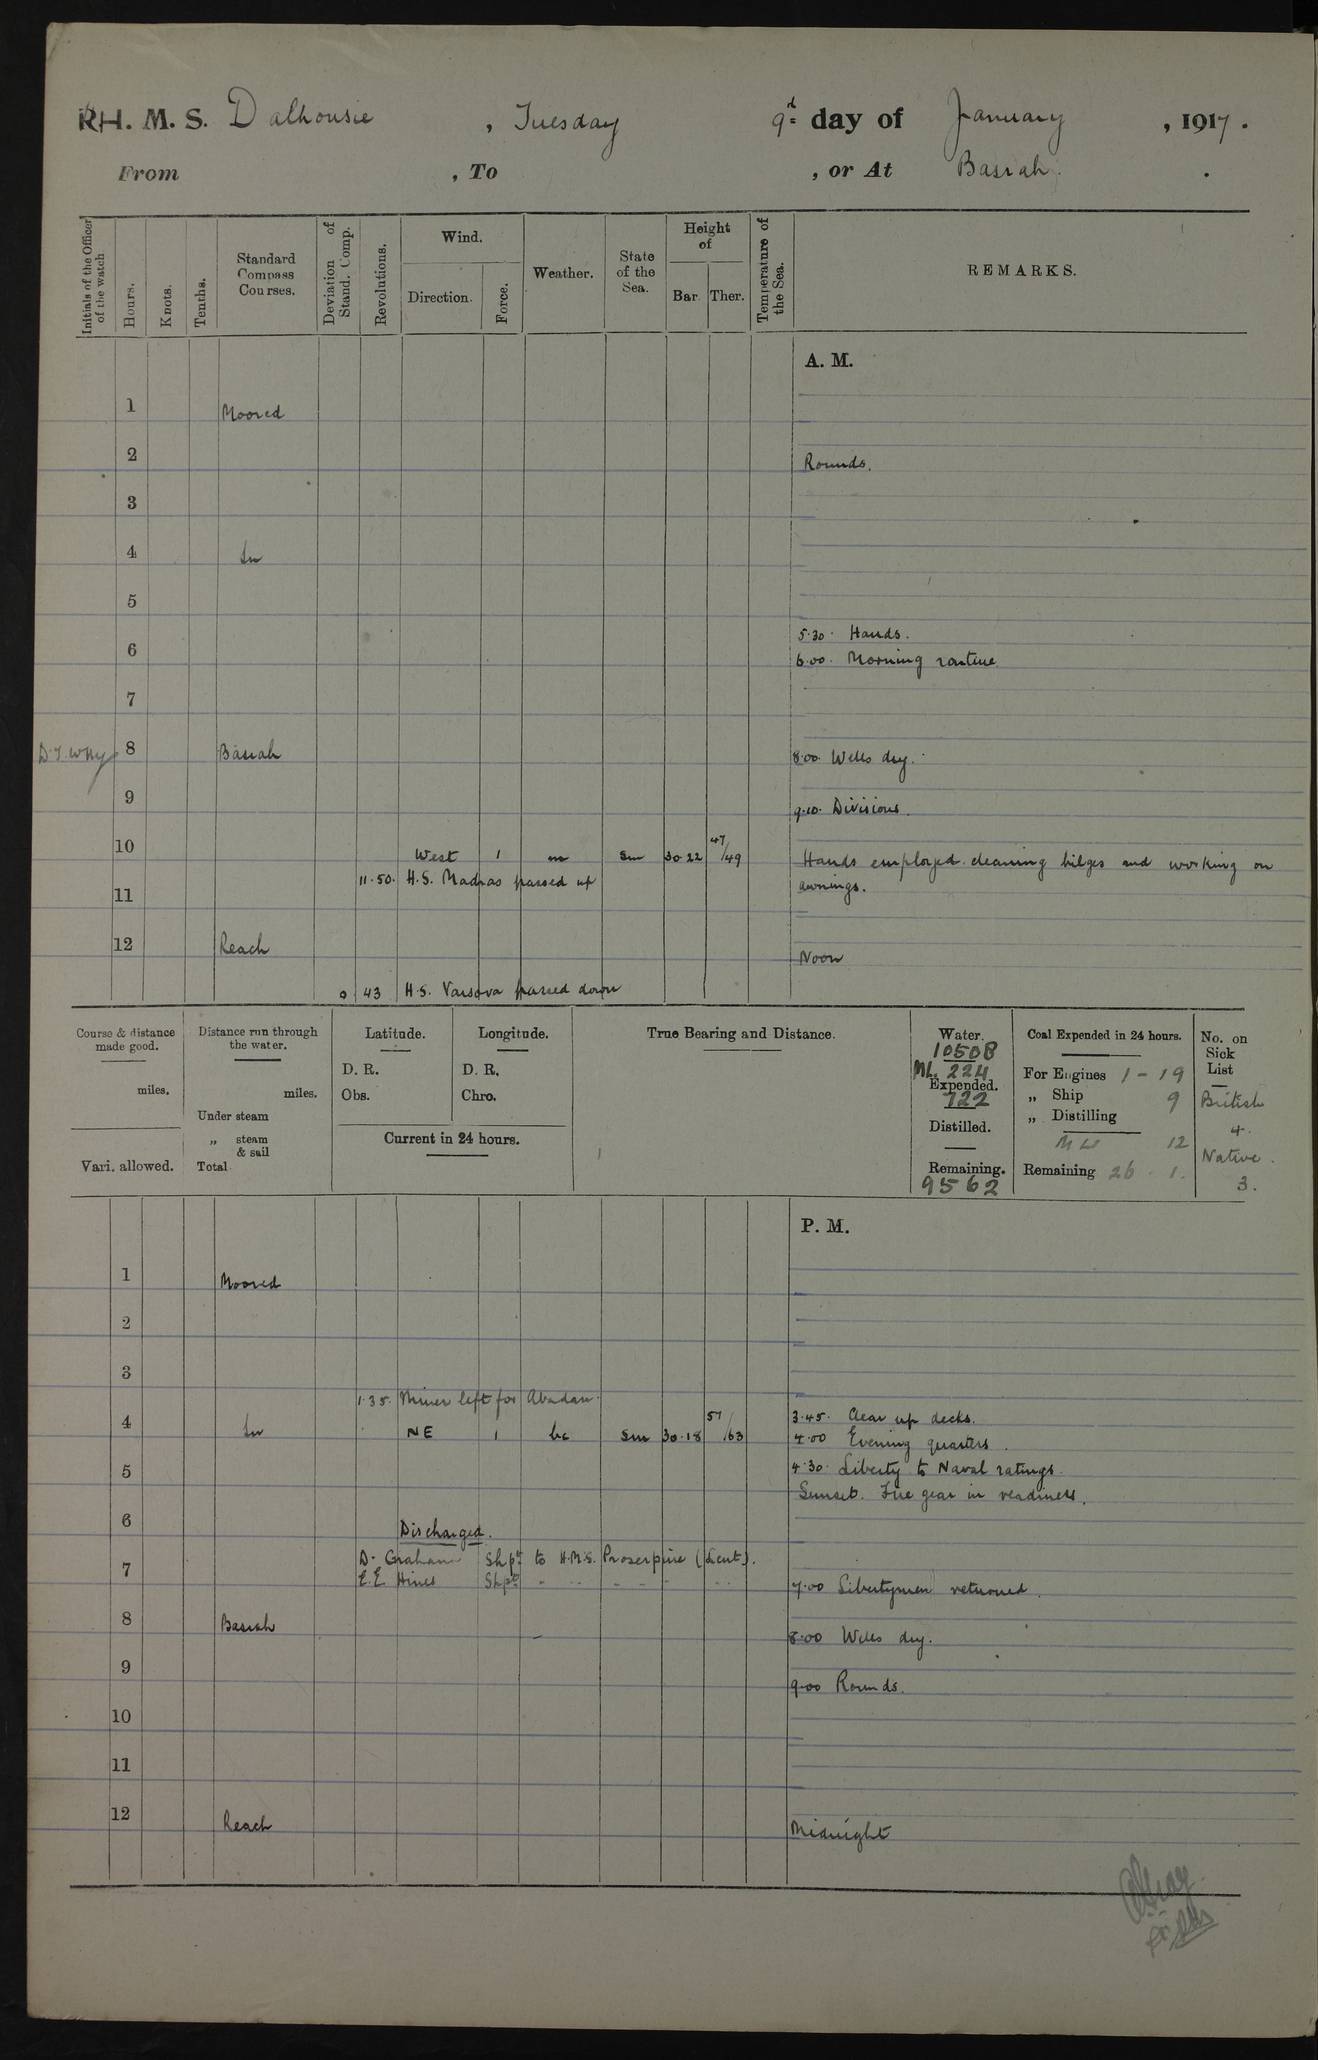 R.H. M. S. Dalhousie , Tuesday 9th day of January , 1917.
From , To , or At Basrah.
Initials of the Officer of the watch
Hours.
Knots.
Tenths.
Standard Compass Courses.
Deviation of Stand. Comp.
Revolutions.
Wind.
Direction.
Force.
Weather.
State of the Sea.
Height of
Bar.
Ther.
Temperature of the Sea.
REMARKS.
A. M.
1 Moored
2 Rounds.
3
4 In
5
5.30. Hands.
6
6.00. Morning routine
7
8 Basrah 8.00. Wells dry.
9
9.10. Divisions.
10 West 1 m Sm 30.22 47/49 Hands employed cleaning bilges and working on
11.50. H.S. Madras passed up awnings.
11
12 Reach Noon
0 43 H.S. Varsova passed down
Course & distance made good.
miles.
Vari. allowed.
Distance run through the water.
miles.
Under steam
„ steam & sail
Total
Latitude.
D. R.
Obs.
Longitude.
D. R.
Chro.
Current in 24 hours.
True Bearing and Distance.
Water.
10508
ML. 224
Expended.
722
Distilled.
Remaining.
9562
Coal Expended in 24 hours.
For Engines 1 - 19
„ Ship 9
„ Distilling
ML 12
Remaining 26 - 1.
No. on Sick List
British
4.
Native.
3.
P. M.
1 Moored
2
3
1.35. Miner left for Abadan.
4 In NE 1 bc Sm 30.18 57/63 3.45. Clear up decks.
4.00 Evening quarters.
5 4.30. Liberty to Naval ratings.
Sunset. Fire gear in readiness.
6
Discharged.
7 D. Graham Shpt to H.M.S. Proserpine (Lent).
E.E. Hines Shpt " " " " "
7.00 Libertymen returned.
8 Basrah
8.00 Wells dry.
9
9.00 Rounds.
10
11
12 Reach Midnight